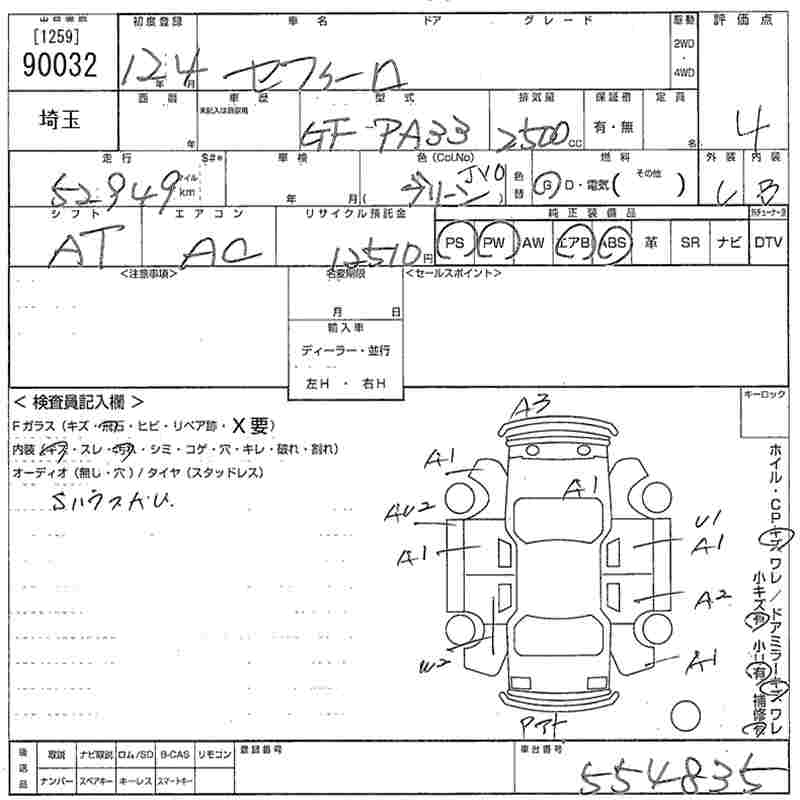 [1259]
90032
初度登録 車名 ドア グレード 駆動 評価点
12年4月 セフィーロ 2WD・4WD 4
埼玉
西暦 車歴 型式 排気量 保証書 定員
年 未記入は自家用 GF-PA33 2500cc 有・無 名
走行 S#* 車検 色(Col.No) 燃料 外装 内装
52949 マイル km 年 月 (グリーン JY0) 色替 G D・電気( その他 ) B
シフト エアコン リサイクル預託金 純正装備品
AT AC 12510円 PS PW AW エアB ABS 革 SR ナビ DTV
<注意事項> 名変期限 <セールスポイント>
月 日
輸入車
ディーラー・並行
左H・右H
キーロック
<検査員記入欄>
Fガラス(キズ・飛石・ヒビ・リペア跡・X要)
内装(キズ・スレ・汚れ・シミ・コゲ・穴・キレ・破れ・割れ)
オーディオ(無し・穴)/タイヤ(スタッドレス)
A3
A1
A1
AU2
A1
U1
A1
A2
U2
A1
ホイル・CPキズ ワレ/ドアミラーキズ ワレ
小キズ有 小U有 補修有
後送品 取説 ナビ取説 ロム/SD B-CAS リモコン 登録番号 車台番号
ナンバー スペアキー キーレス スマートキー 554835